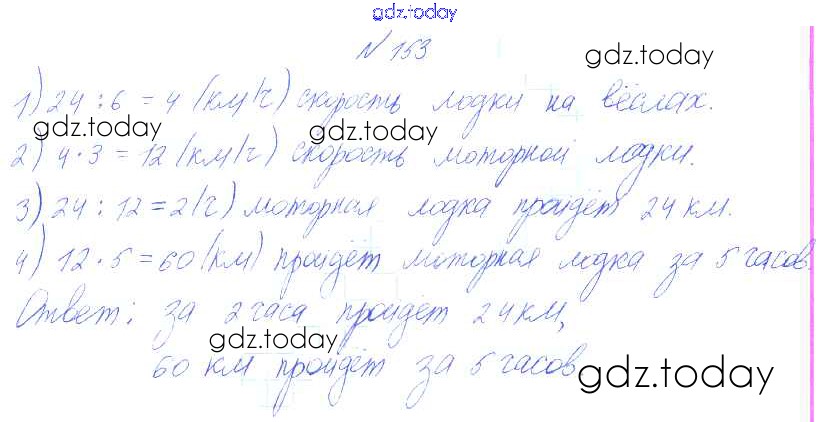 gdz.today
N 153
gdz.today
1) 24 : 6 = 4 (км/ч) скорость лодки на вёслах.
gdz.today
gdz.today
2) 4 · 3 = 12 (км/ч) скорость моторной лодки.
3) 24 : 12 = 2 (ч) моторная лодка пройдёт 24 км.
4) 12 · 5 = 60 (км) пройдёт моторная лодка за 5 часов.
Ответ: за 2 часа пройдёт 24 км,
gdz.today
60 км пройдёт за 5 часов.
gdz.today